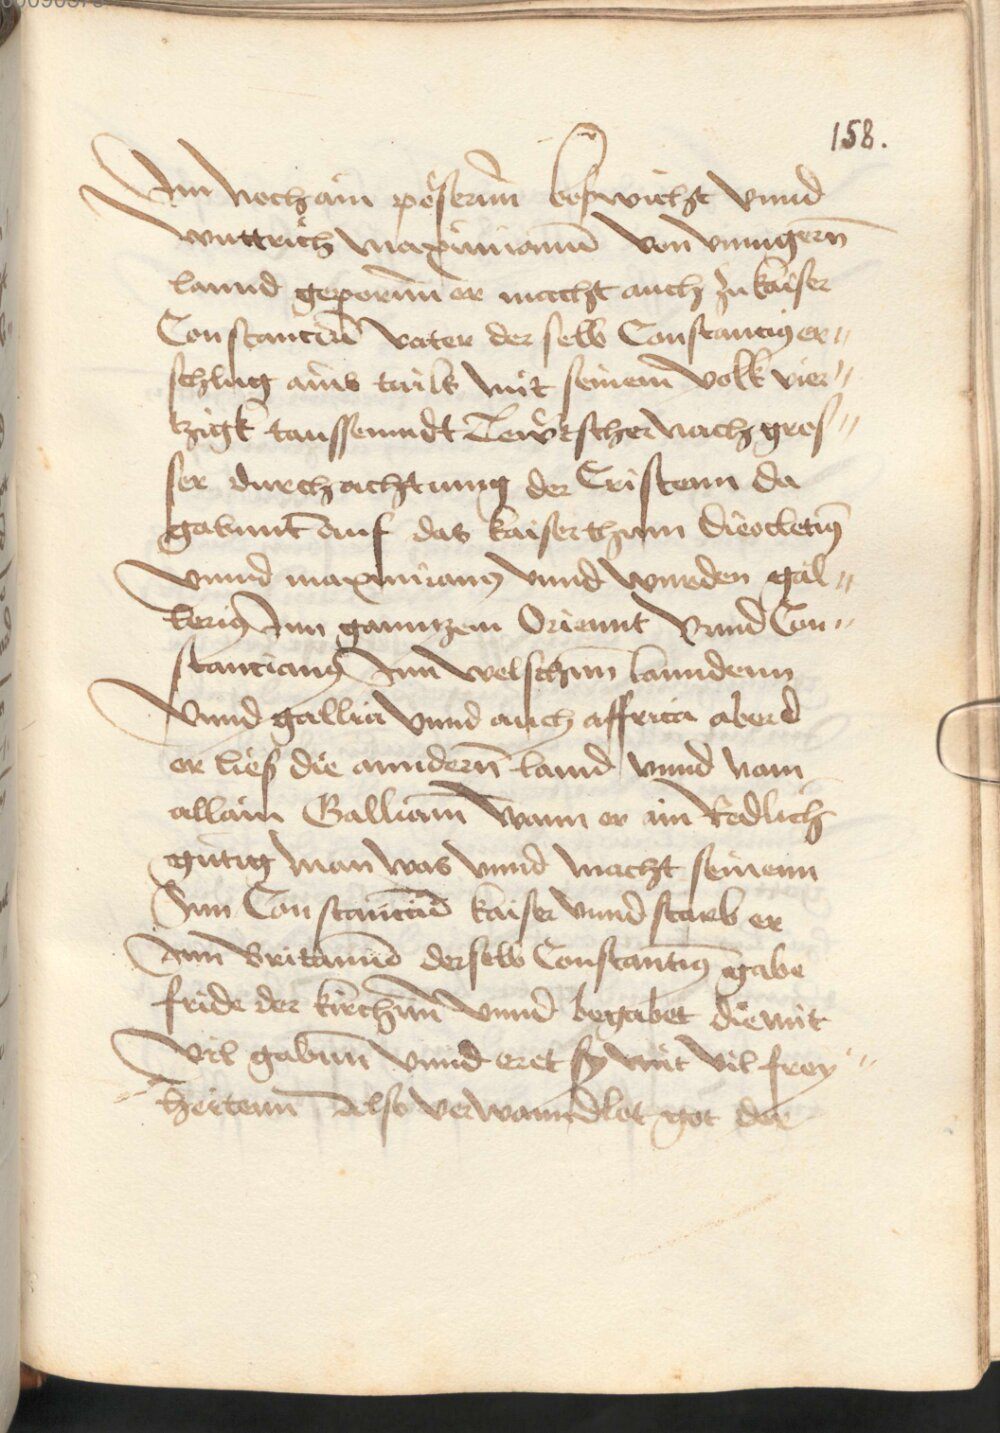 158.
Im noch ain pöserm̄ bößwicht vnnd
wuttrich maximianū von vnngern̄
lannd geporn̄ er macht auch zu kaiser
Constanciū vater der selb Constancius er„
schlug ains tails mit seinem volk vier„
tzigk taussenndt Tewtscher nach gros„
ser durchachtung der Cristenn da
gabennt auf das kaiserthum dieocletius
vnnd maximianus vnnd wurden gal„
lerius Inn ganntzem Oriennt vnnd Con„
stancianus Inn welschen̄ lanndenn
vnnd gallia vnnd auch affrica aber
er ließ die anndern̄ land vnnd nam
allain Galliam̄ wann er ain Redlich
gütig man was vnnd macht seinenn
Sun Constanciū kaiser vnnd starb er
Inn Britannia derselb Constantius gabe
fride der kirchen̄ vnnd begabet die mit
vil gaben̄ vnnd eret sy mit vil frey„
„heitenn Also verwanndlet got der